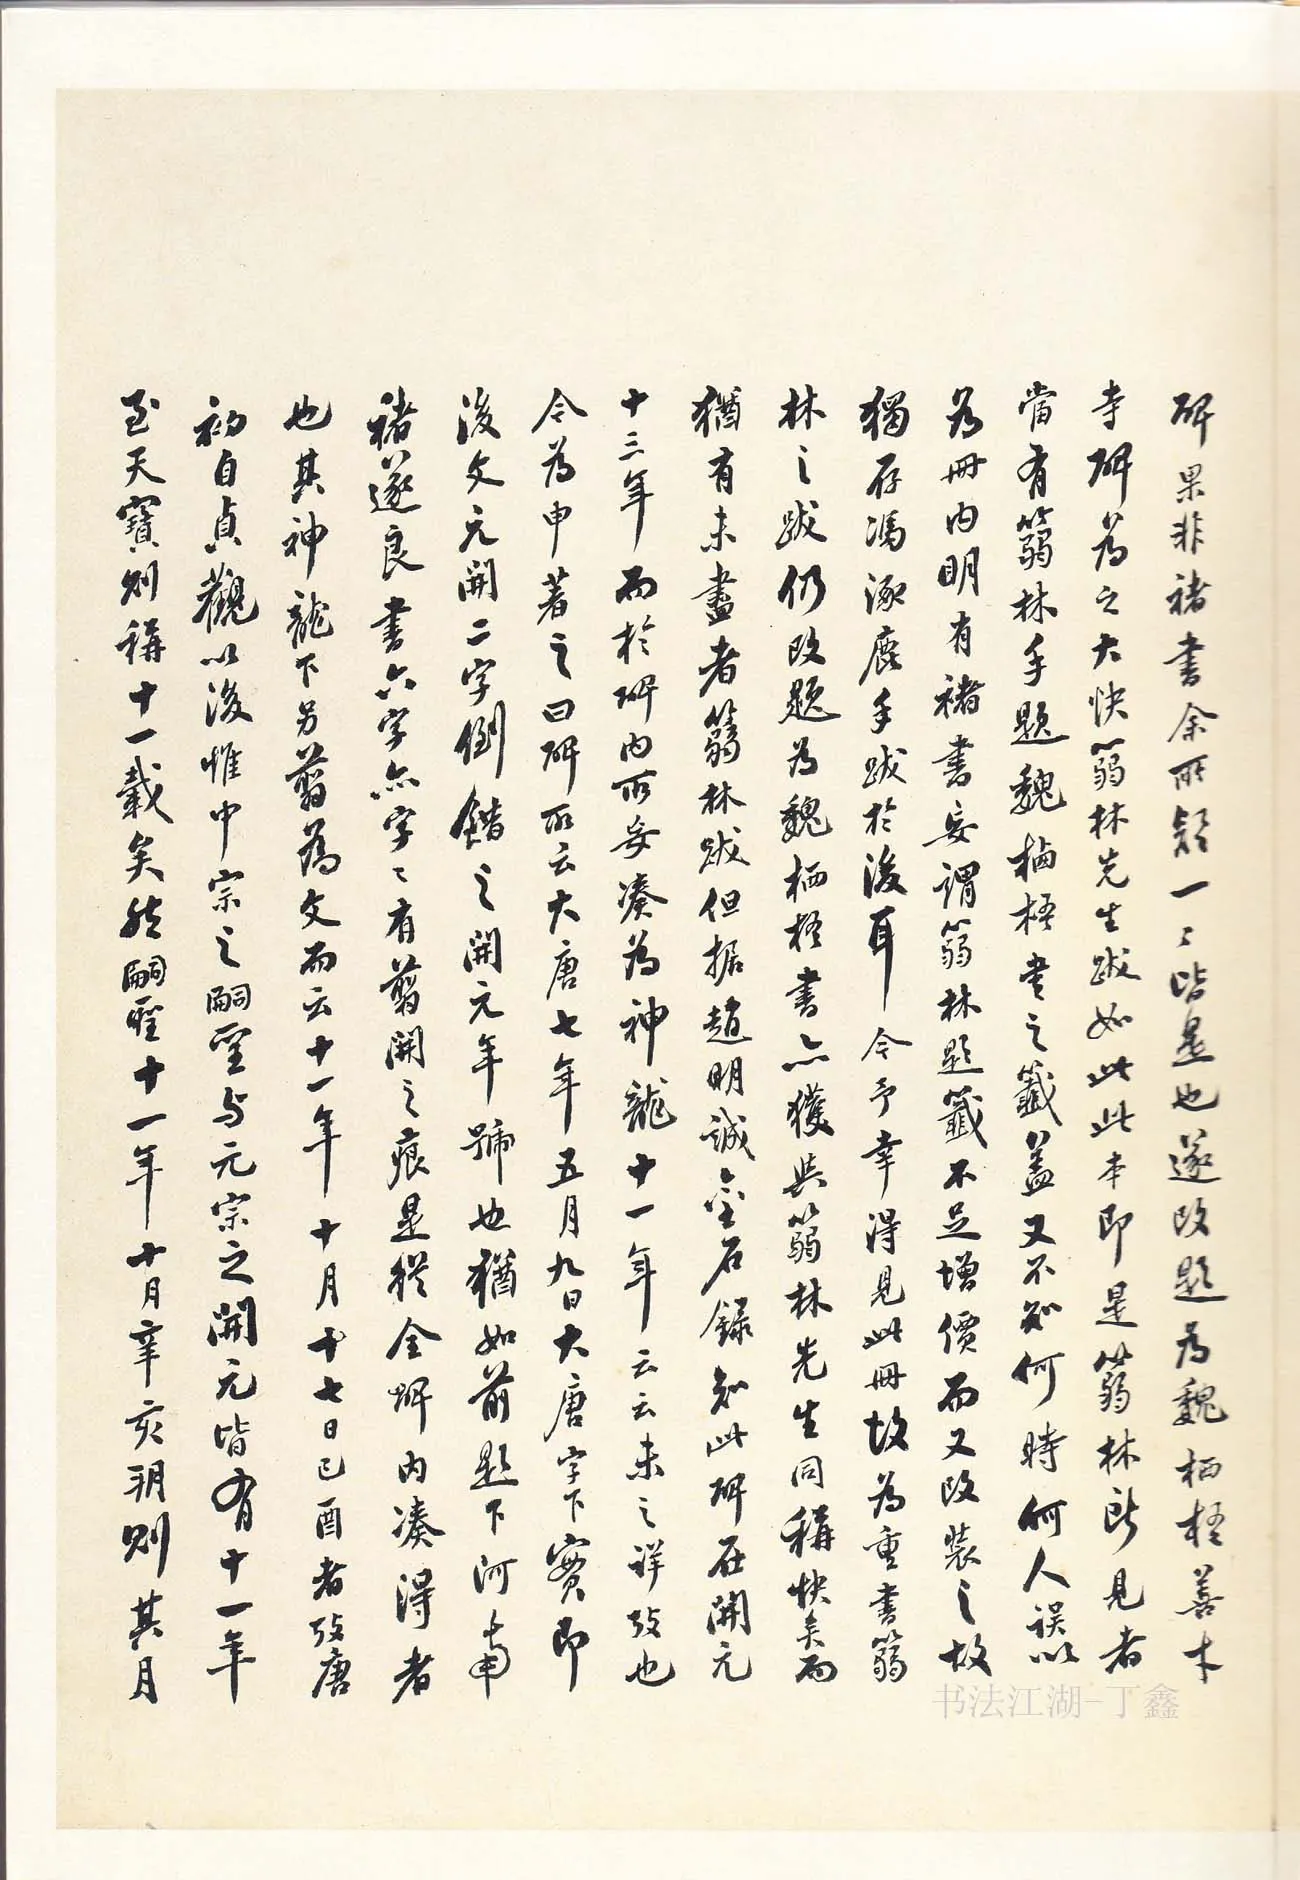 碑果非褚書余所疑一〻皆是也遂改題為魏栖梧善才
寺碑為之大快篛林先生跋如此此本即是篛林所見者
當有篛林手題魏栖梧書之籤蓋又不知何時何人誤以
為冊內明有褚書妄謂篛林題籤不足增價而又改裝之故
獨存馮涿鹿手跋於後耳今予幸得見此冊故為重書篛
林之跋仍改題為魏栖梧書亦獲與篛林先生同稱快矣而
猶有未盡者篛林跋但据趙明誠金石錄知此碑在開元
十三年而於碑內所妄湊為神龍十一年云云未之詳攷也
今為申著之曰碑所云大唐七年五月九日大唐字下實即
後文元開二字倒錯之開元年號也猶如前題下河南
褚遂良書六字亦字〻有翦開之痕是從全碑內湊得者
也其神龍下另翦為文而云十一年十月十七日己酉者攷唐
初自貞觀以後惟中宗之嗣聖与元宗之開元皆有十一年
至天寶則稱十一載矣然嗣聖十一年十月辛亥朔則其月
书法江湖-丁鑫